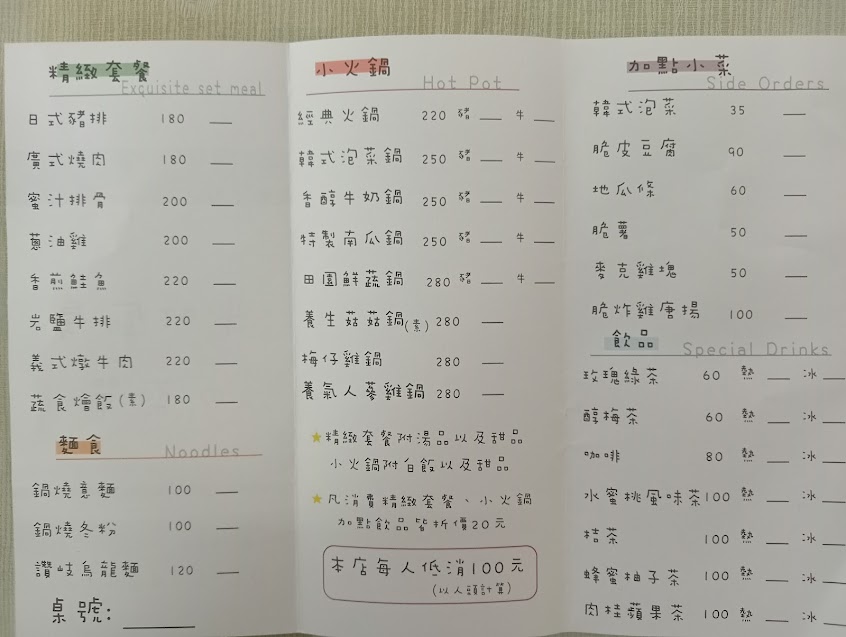 精緻套餐
Exquisite set meal
日式豬排 180
廣式燒肉 180
蜜汁排骨 200
蔥油雞 200
香煎鮭魚 220
岩鹽牛排 220
義式燉牛肉 220
蔬食燴飯(素) 180
麵食
Noodles
鍋燒意麵 100
鍋燒冬粉 100
讚岐烏龍麵 120
桌號:
小火鍋
Hot Pot
經典火鍋 220 豬 牛
韓式泡菜鍋 250 豬 牛
香醇牛奶鍋 250 豬 牛
特製南瓜鍋 250 豬 牛
田園鮮蔬鍋 280 豬 牛
養生菇菇鍋(素) 280
梅仔雞鍋 280
養氣人蔘雞鍋 280
★精緻套餐附湯品以及甜品
小火鍋附白飯以及甜品
★凡消費精緻套餐、小火鍋
加點飲品皆折價20元
本店每人低消100元
(以人頭計算)
加點小菜
Side Orders
韓式泡菜 35
脆皮豆腐 90
地瓜條 60
脆薯 50
麥克雞塊 50
脆炸雞唐揚 100
飲品
Special Drinks
玫瑰綠茶 60 熱 冰
醇梅茶 60 熱 冰
咖啡 80 熱 冰
水蜜桃風味茶 100 熱 冰
桔茶 100 熱 冰
蜂蜜柚子茶 100 熱 冰
肉桂蘋果茶 100 熱 冰